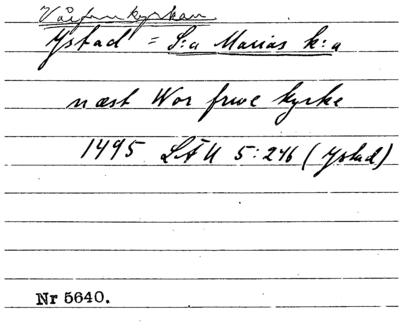 Vårfrukyrkan
Ystad = S:a Marias k:a
næst Wor frwe kyrke
1495 LÄU 5:246 (Ystad)
Nr 5640.